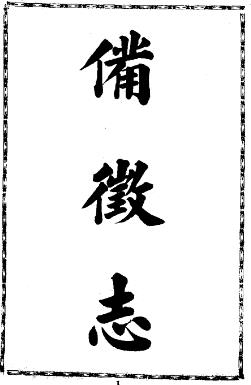 備徵志
1